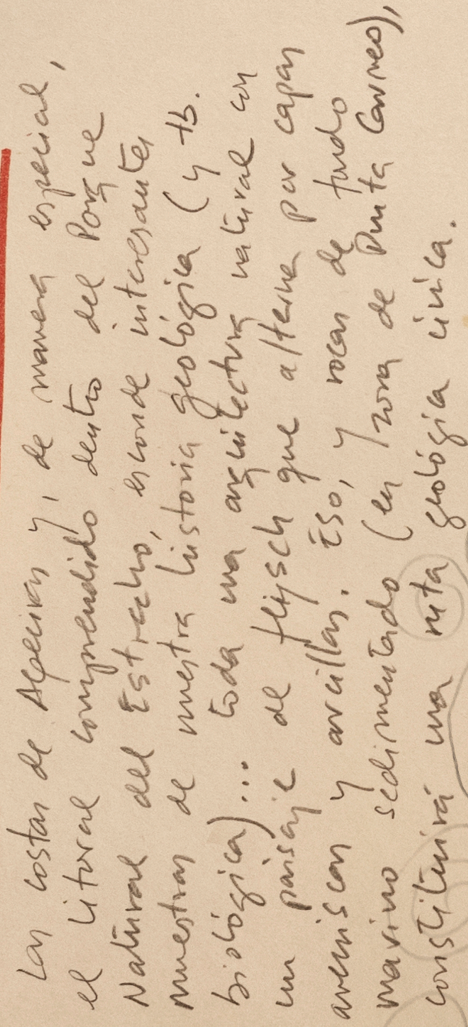 Las costas de Algeciras y, de manera especial,
el litoral comprendido dentro del Parque
Natural del Estrecho, esconde interesantes
muestras de nuestra historia geológica (y tb.
biológica)... toda una arquitectura natural con
un paisaje de flysch que alterna por capas
areniscas y arcillas. Eso, y rocas de fondo
marino sedimentado (en zona de Punta Carnero),
constituirá una ruta geológica única.